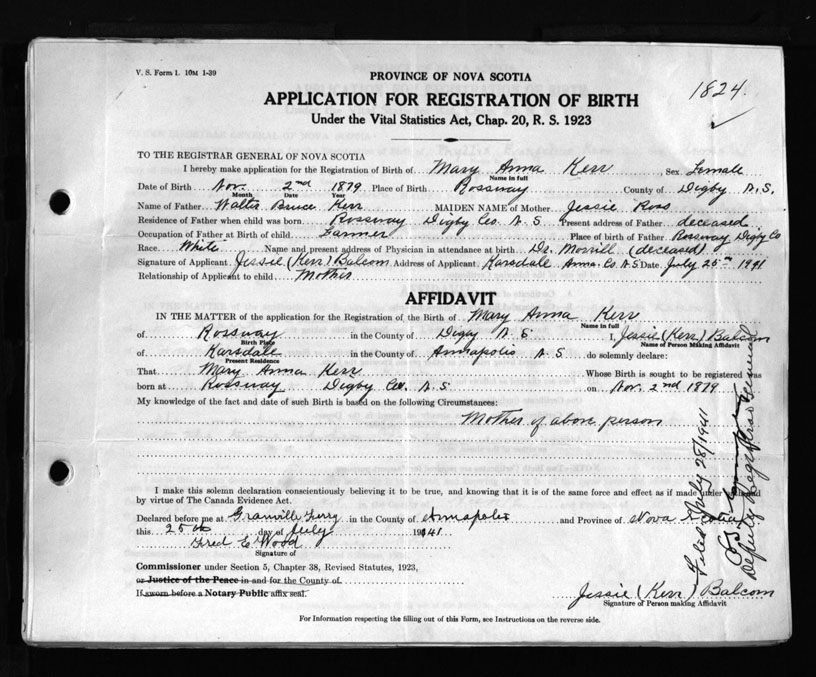 V. S. Form 1. 10M 1-39
PROVINCE OF NOVA SCOTIA
1824.
APPLICATION FOR REGISTRATION OF BIRTH
Under the Vital Statistics Act, Chap. 20, R. S. 1923
TO THE REGISTRAR GENERAL OF NOVA SCOTIA
I hereby make application for the Registration of Birth of Mary Anna Kerr, Sex Female
Name in full
Date of Birth Nov. 2nd 1879 Place of Birth Rossway County of Digby N.S.
Month Date Year
Name of Father Walter Bruce Kerr MAIDEN NAME of Mother Jessie Ross
Residence of Father when child was born Rossway Digby Co. N.S Present address of Father deceased
Occupation of Father at Birth of child Farmer Place of birth of Father Rossway Digby Co
Race White Name and present address of Physician in attendance at birth Dr. Morrill (deceased)
Signature of Applicant Jessie (Kerr) Balcom Address of Applicant Karsdale Anna. Co. N.S Date July 25th 1941
Relationship of Applicant to child Mother
AFFIDAVIT
IN THE MATTER of the application for the Registration of the Birth of Mary Anna Kerr
Name in full
of Rossway in the County of Digby N S I, Jessie (Kerr) Balcom
Birth Place Name of Person Making Affidavit
of Karsdale in the County of Annapolis N S do solemnly declare:
Present Residence
That Mary Anna Kerr Whose Birth is sought to be registered was
born at Rossway Digby Co. N. S on Nov. 2nd 1879
My knowledge of the fact and date of such Birth is based on the following Circumstances:
Mother of above person
I make this solemn declaration conscientiously believing it to be true, and knowing that it is of the same force and effect as if made under oath and
by virtue of The Canada Evidence Act.
Declared before me at Granville Ferry in the County of Annapolis and Province of Nova Scotia
this 25th day of July 1941
Fred E Wood
Signature of
Commissioner under Section 5, Chapter 38, Revised Statutes, 1923,
or Justice of the Peace in and for the County of
If sworn before a Notary Public affix seal.
Jessie (Kerr) Balcom
Signature of Person making Affidavit
For Information respecting the filling out of this Form, see Instructions on the reverse side.
Filed July 28/1941
Deputy Registrar General